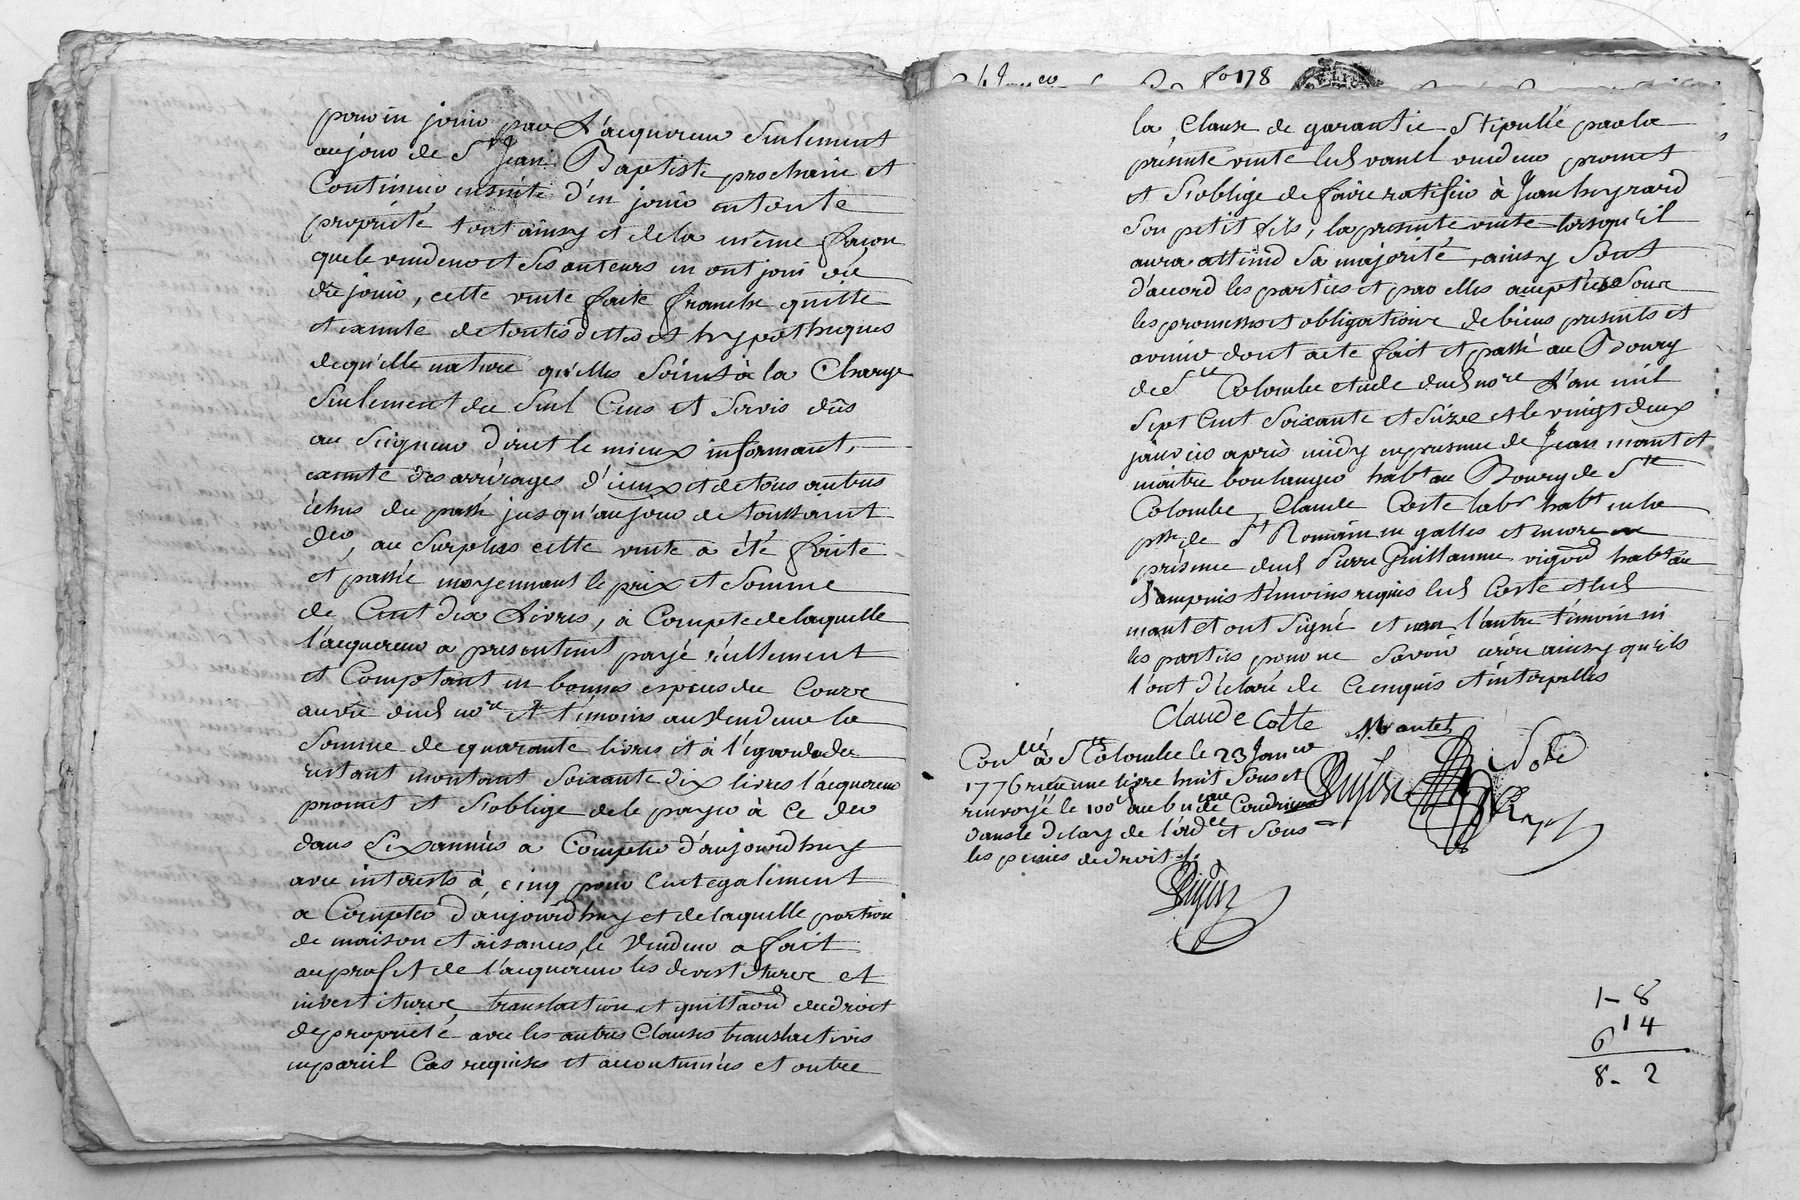 pour en jouir par l'acquereur seulement
au jour de St Jean Baptiste prochain et
continuer ensuite d'en jouir en toute
propriété tout ainsy et de la même façon
que le vendeur et ses auteurs en ont joui
dû jouir, cette vente faite franche quitte
et exempte de touttes dettes et hypotheques
de qu'elle nature qu'elles soient à la charge
seulement du seul Cens et servis dûs
au seigneur direct le mieux informant,
exempte des arrérages d'iceux et de tous autres
échus du passé jusqu'au jour de toussaint
der, au surplus cette vente a été faite
et passée moyennant le prix et somme
de Cent dix Livres, à Compte de laquelle
l'acquereur a presentement payé réellement
et Comptant en bonnes especes du Cours
au vû dud nore et témoins au vendeur la
somme de quarante livres et à l'egard du
restant montant soixante dix livres l'acquereur
promet et s'oblige de le payer à Ce der
dans six années a Compter d'aujourdhuy
avec interests à cinq pour cent egalement
a Compter d'aujourdhuy et de laquelle portion
de maison et aisances, le vendeur a fait
au profit de l'acquéreur les devestiture et
investiture, translation et quittance du droit
de propriété avec les autres Clauses translatives
en pareil Cas requises et accoutumées et outre
fo 178
la Clause de garantie stipulée par la
présente vente led vendeur promet
et s'oblige de faire ratifier à Jean
son petit fils, la presente vente lorsqu'il
aura atteind sa majorité, ainsy sont
d'accord les parties et par elles acceptée sous
les promesses et obligations de biens presents et
avenir dont acte fait et passé au Bourg
de Ste Colombe etude dud nore L'an mil
sept Cent soixante et seize et le vingt deux
janvier après midy en presence de Jean mantet
maitre boulanger habt au Bourg de Ste
Colombe, Claude Coste labr habt en la
psse de St Romain en galles et encore en
présence dud Pierre Guillaume vigd habt au
d'ampuis témoins requis led Coste et led
mantet ont signé et non l'autre témoin ni
les parties pour ne savoir écrire ainsy qu'ils
l'ont déclaré de Ce enquis et interpellés
Claude Cotte Mantet
Conlé à Ste Colombe le 23 Janer
1776 reçu une livre huit sous et
renvoyé le 100e au bureau de Condrieu
dans le delay de l'ordce et sous
les peines de droit
1 - 8
6 14
8 - 2